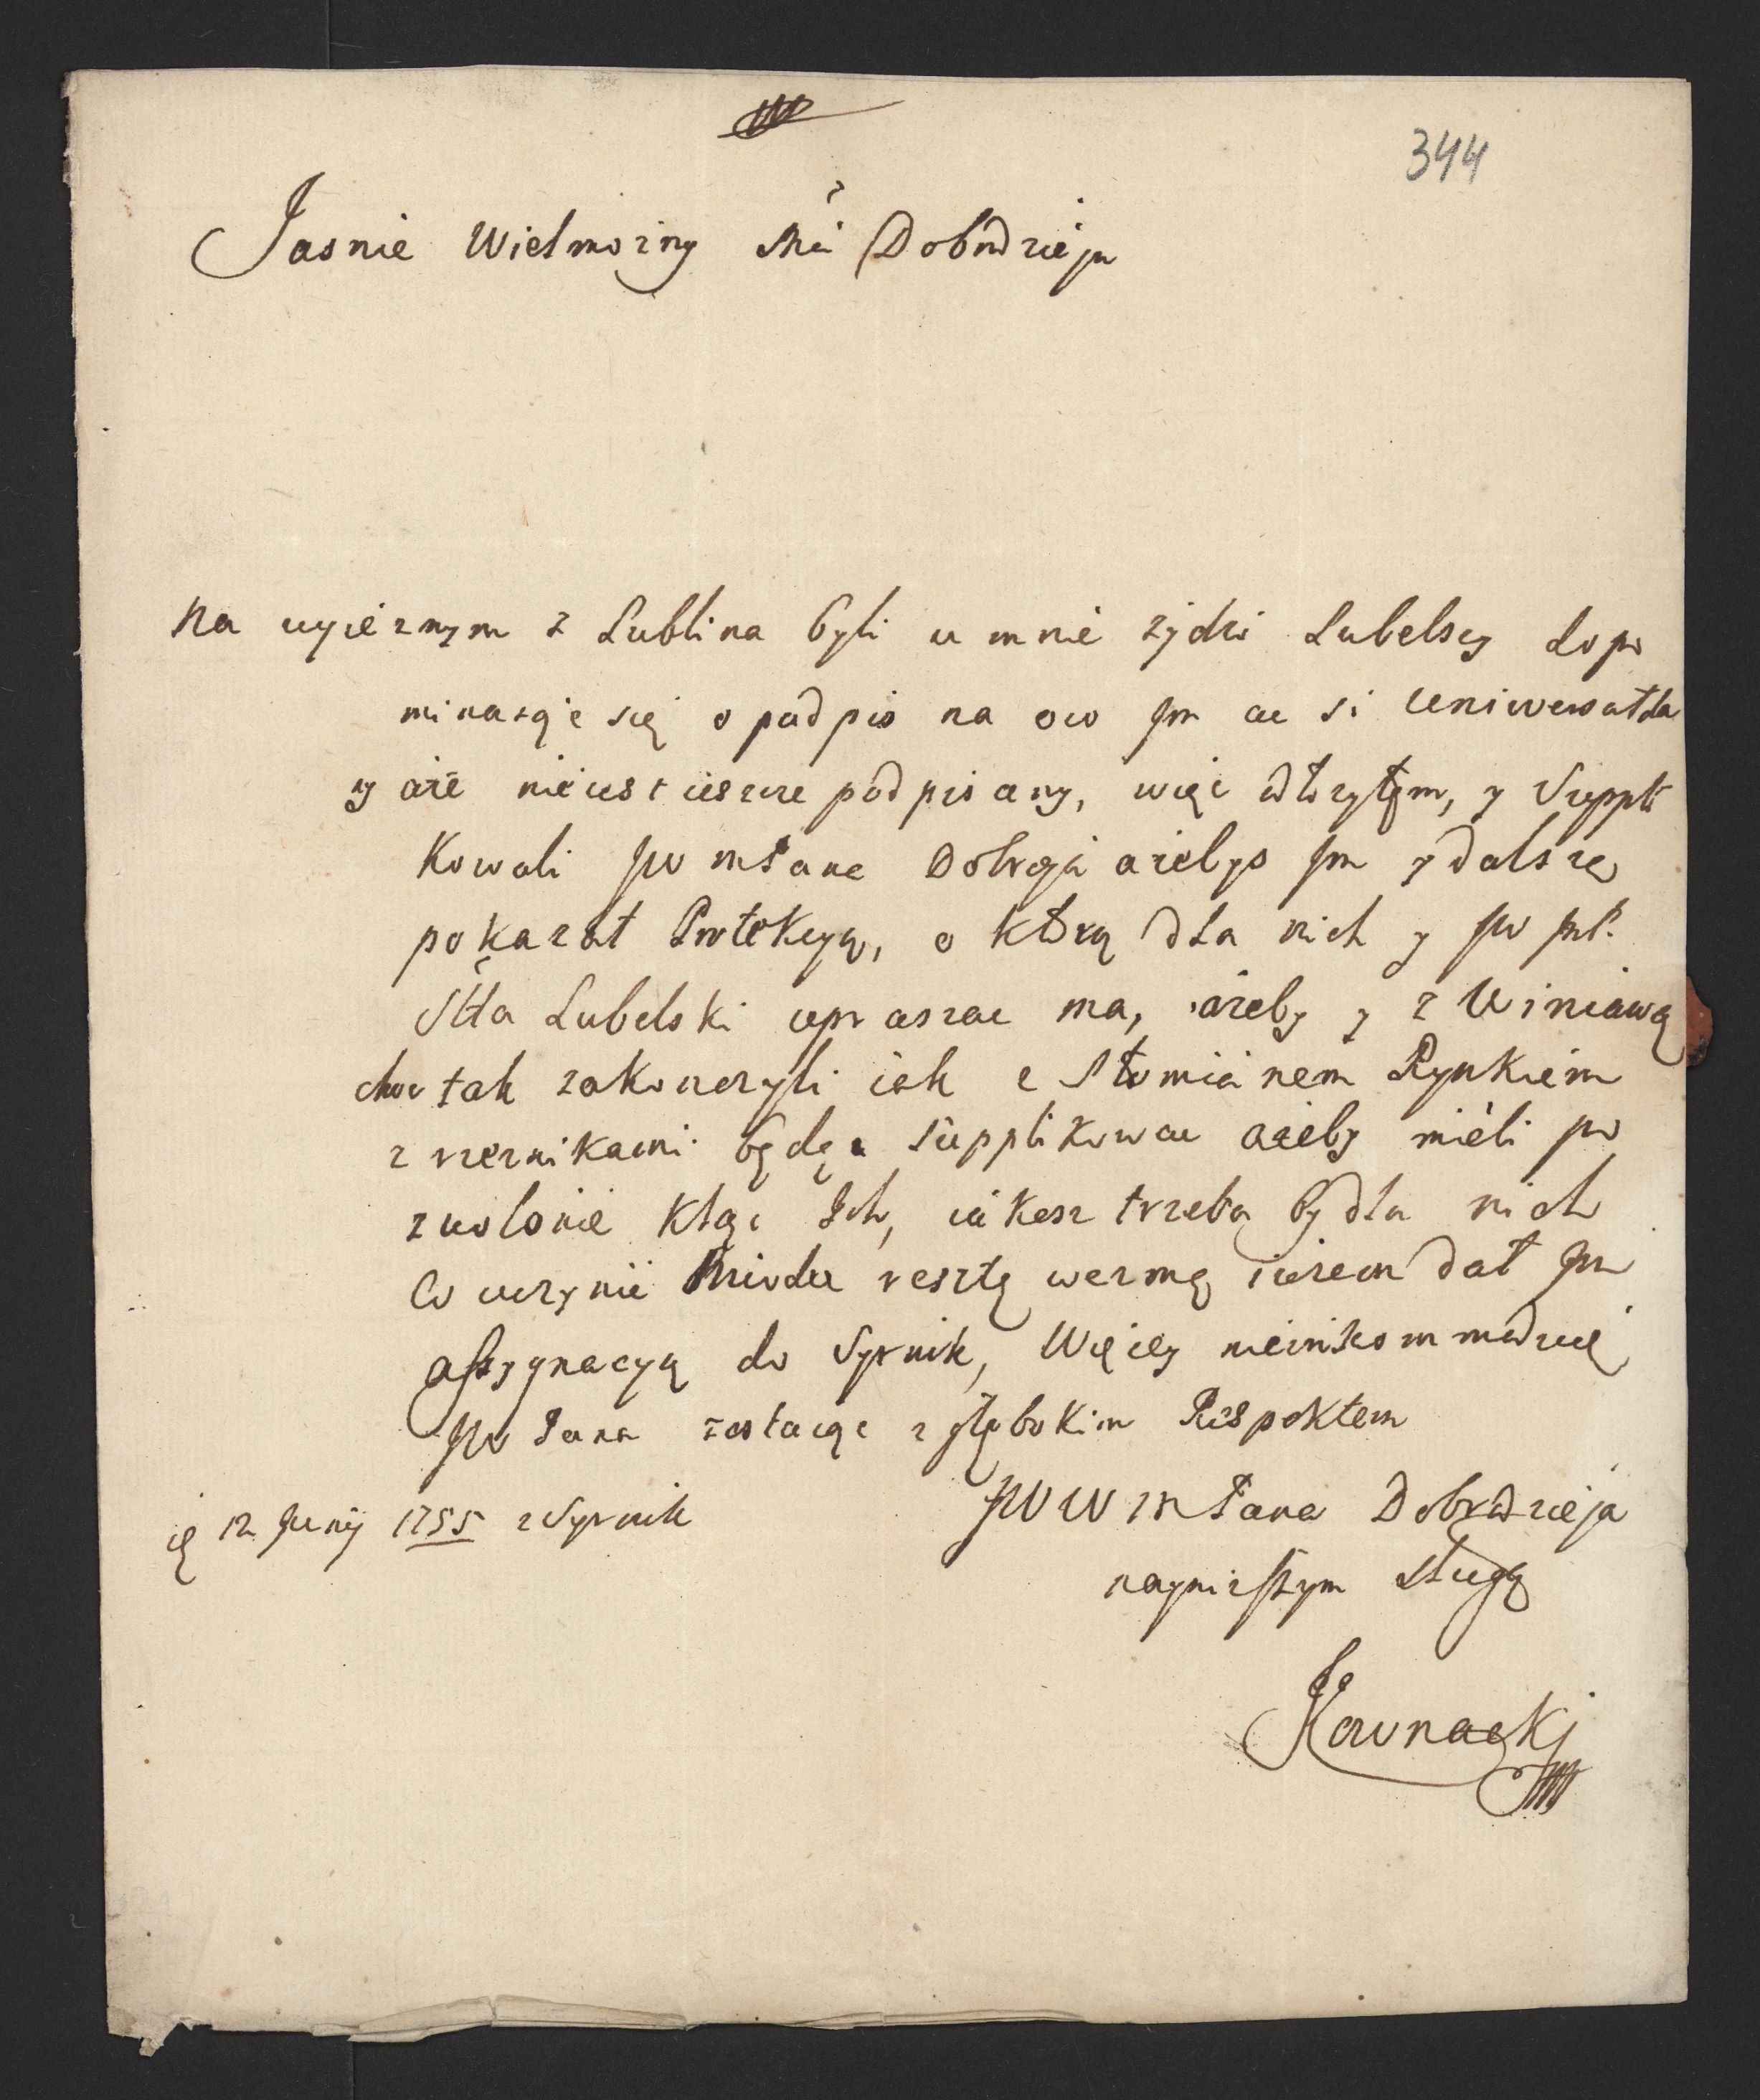 344
Jasnie Wielmożny Mci Dobrodzieju
Na wyieznym z Lublina byli u mnie żydzi Lubelscy dopo
minaiąc się o podpis na owo Im Uniwersał da
y aże nie iest ieszcze podpisany, więc y Suppli
kowali JW mPana Dobrgja ażebyś Im y dalszą
pokazał Protekcyą, o ktorą dla nich y JW
Stta Lubelski upraszac ma, ażeby y z Winiawą
choc tak zakonczyli iak z Słomianem Rynkiem
z rzeznikami będą supplikowac ażeby mieli po
zwolenie Ich, iakosz trzeba by dla nich
to uczynic Miodu resztę wezmę iużem dał Im
assygnacyą do Syrnik, Więcey nieinkommoduię
JW Pana zostaiąc z głębokim Respektem
JWW mPana Dobrodzieja
naynisszym sługą
12 Junij 1755 z Syrnik
Kownacki